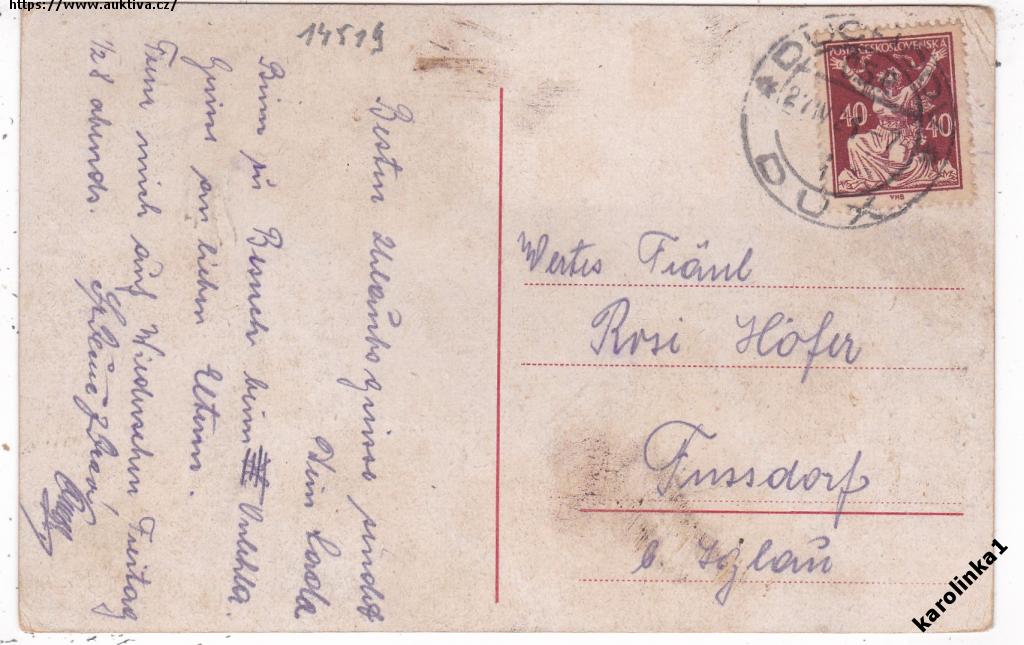 https://www.auktiva.cz/
14519
Besten Urlaubsgruss sendet
Dein
Bin zu Besuch beim
Gruss an lieben Eltern.
Freu mich auf Wiedersehen Freitag
1/2 8 abends.
POŠTA ČESKOSLOVENSKÁ
40 40
VHB
DUCHCOV
27 IV
DUX
Wertes Fräul
Rosi Höfer
Fussdorf
b. Iglau
karolinka1